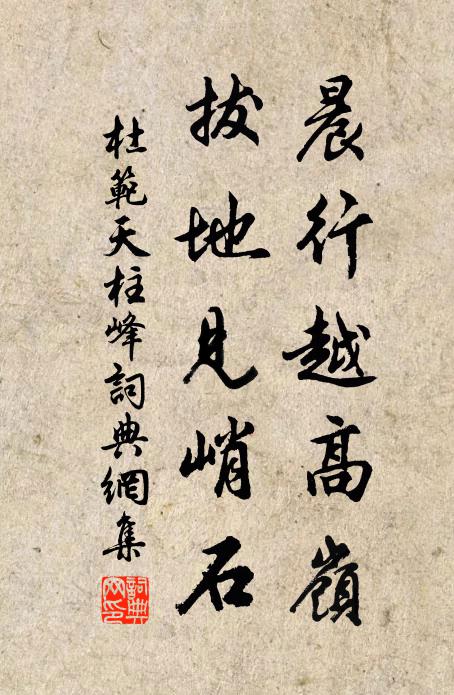 晨行越高嶺
拔地見峭石
杜範天柱峰詞典網集
詞典網印